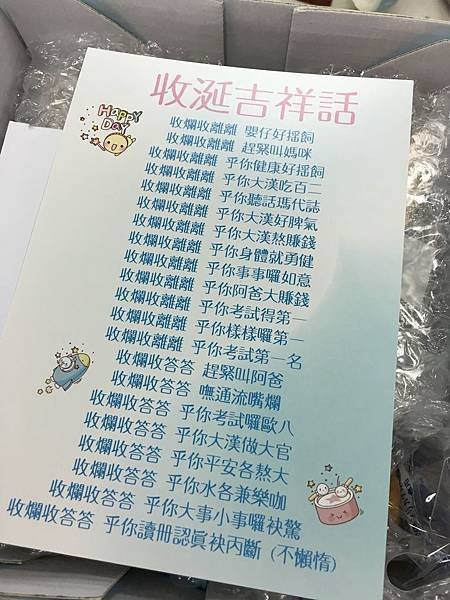 收涎吉祥話
HAPPY DAY
收爛收離離 嬰仔好搖飼
收爛收離離 趕緊叫媽咪
收爛收離離 乎你健康好搖飼
收爛收離離 乎你大漢吃百二
收爛收離離 乎你聽話瑪代誌
收爛收離離 乎你大漢好脾氣
收爛收離離 乎你大漢熬賺錢
收爛收離離 乎你身體就勇健
收爛收離離 乎你事事囉如意
收爛收離離 乎你阿爸大賺錢
收爛收離離 乎你考試得第一
收爛收離離 乎你樣樣囉第一
收爛收離離 乎你考試第一名
收爛收答答 趕緊叫阿爸
收爛收答答 嘸通流嘴爛
收爛收答答 乎你考試囉歐八
收爛收答答 乎你大漢做大官
收爛收答答 乎你平安各熬大
收爛收答答 乎你水各兼樂咖
收爛收答答 乎你大事小事囉袂驚
收爛收答答 乎你讀冊認真袂丙斷 (不懶惰)